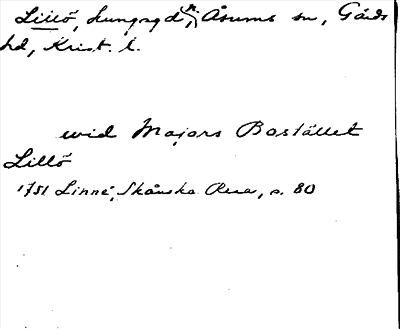 Lillö, kungsgd, Åsums sn, Gärds
hd, Krist. l.
wid Majors Bostället
Lillö
1751 Linné, Skånska Resa, s. 80